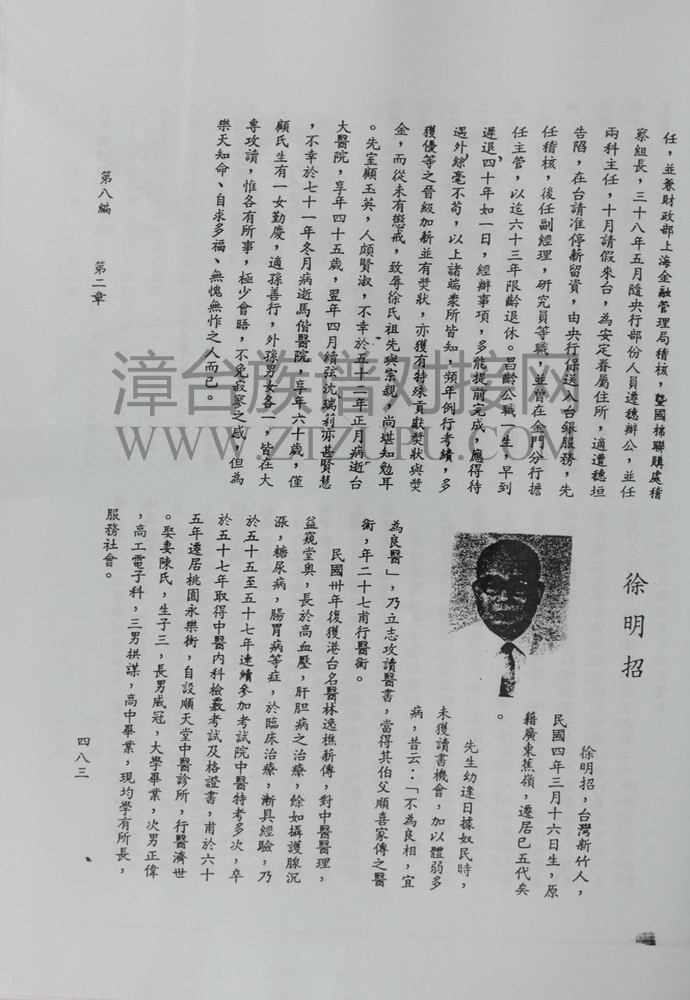 任，並兼財政部上海金融管理局稽核，暨國棉聯購處稽
察組長，三十八年五月隨央行部份人員遷穗辦公，並任
兩科主任，十月請假來台，為安定眷屬住所，適遭穗垣
告陷，在台請准停薪留資，由央行保送入台銀服務，先
任稽核，後任副經理，研究員等職，並曾在金門分行擔
任主管，以迄六十三年限齡退休。昌齡公職一生，早到
遲退四十年如一日，經辦事項，多能提前完成，應得待
遇外絲毫不苟，以上諸端衆所皆知，頻年例行考績，多
獲優等之晉級加薪並有奬狀，亦獲有特殊貢獻奬狀與奬
金，而從未有懲戒，致辱徐氏祖先與宗親，尚堪知勉耳
。先室顧玉英，人頗賢淑，不幸於五十二年正月病逝台
大醫院，享年四十五歲，翌年四月續弦沈瑞利亦甚賢慧
，不幸於七十一年冬月病逝馬偕醫院，享年六十歲，僅
顧氏生有一女勤慶，適孫善行，外孫男女各一，皆在大
專攻讀，惟各有所事，極少會晤，不免寂寥之感，但為
樂天知命、自求多福、無愧無怍之人而已。
徐明招
徐明招，台灣新竹人，
民國四年三月十六日生，原
籍廣東蕉嶺，遷居已五代矣
。
先生幼逢日據奴民時，
未獲讀書機會，加以體弱多
病，昔云：「不為良相，宜
為良醫」，乃立志攻讀醫書，當得其伯父順喜家傳之醫
術，年二十七甫行醫術。
民國卅年復獲港台名醫林逸樵薪傳，對中醫醫理，
益窺堂奧，長於高血壓，肝胆病之治療，餘如攝護腺沉
漲，糖尿病，腸胃病等症，於臨床治療，漸具經驗，乃
於五十五至五十七年連續參加考試院中醫特考多次，卒
於五十七年取得中醫內科檢覈考試及格證書，甫於六十
五年遷居桃園永樂街，自設順天堂中醫診所，行醫濟世
。娶妻陳氏，生子三，長男威冠，大學畢業，次男正偉
，高工電子科，三男拱謀，高中畢業，現均學有所長，
服務社會。
第八編　第二章
四八三
漳台族谱对接网
WWW.ZTZUPU.COM